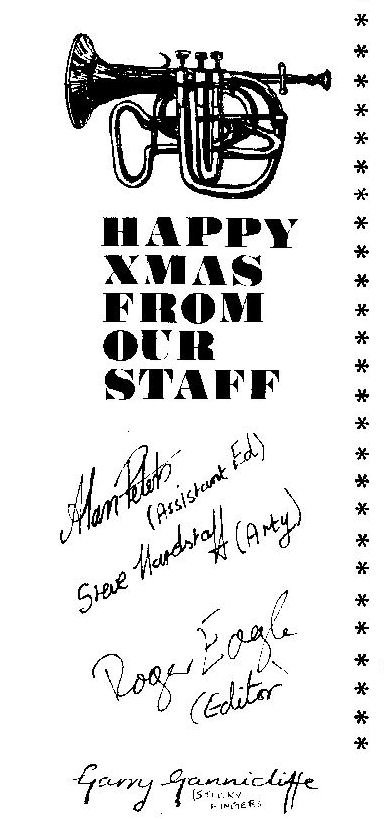 HAPPY
XMAS
FROM
OUR
STAFF
Alan Peters
(Assistant Ed)
Steve Hardstaff (Arty)
Roger Eagle
(Editor
Garry Gannicliffe
(STICKY
FINGERS
* * * * * * * * * * * * * * * * * * * * * * * * * *